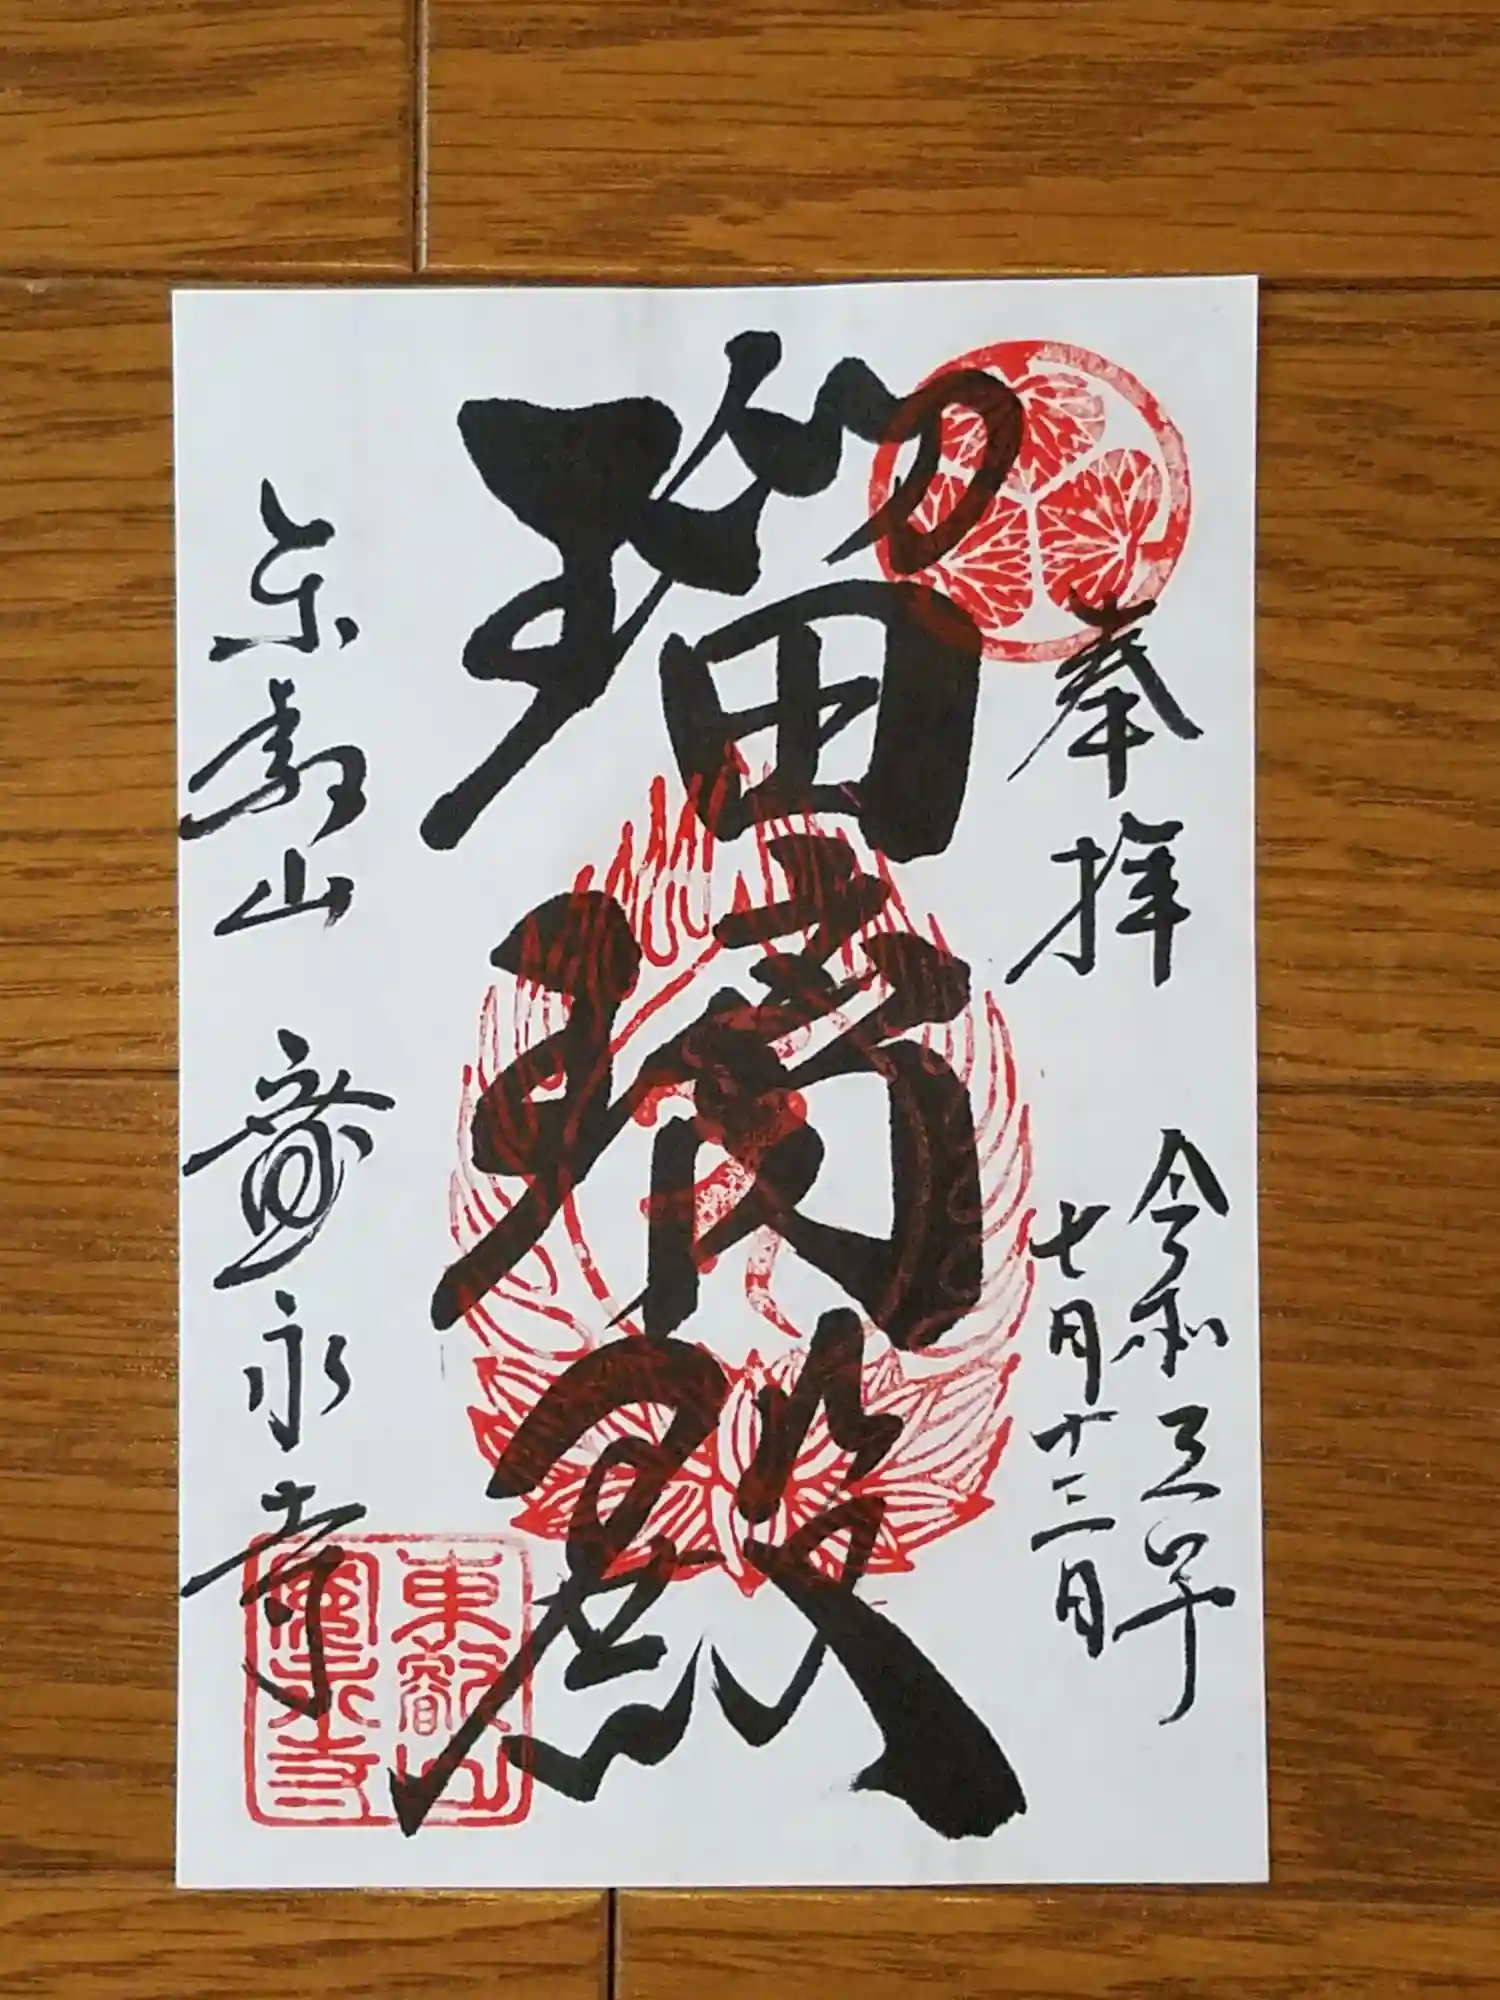 奉拝
令和五年
七月十二日
瑠璃殿
東叡山 寛永寺
東叡山
寛永寺